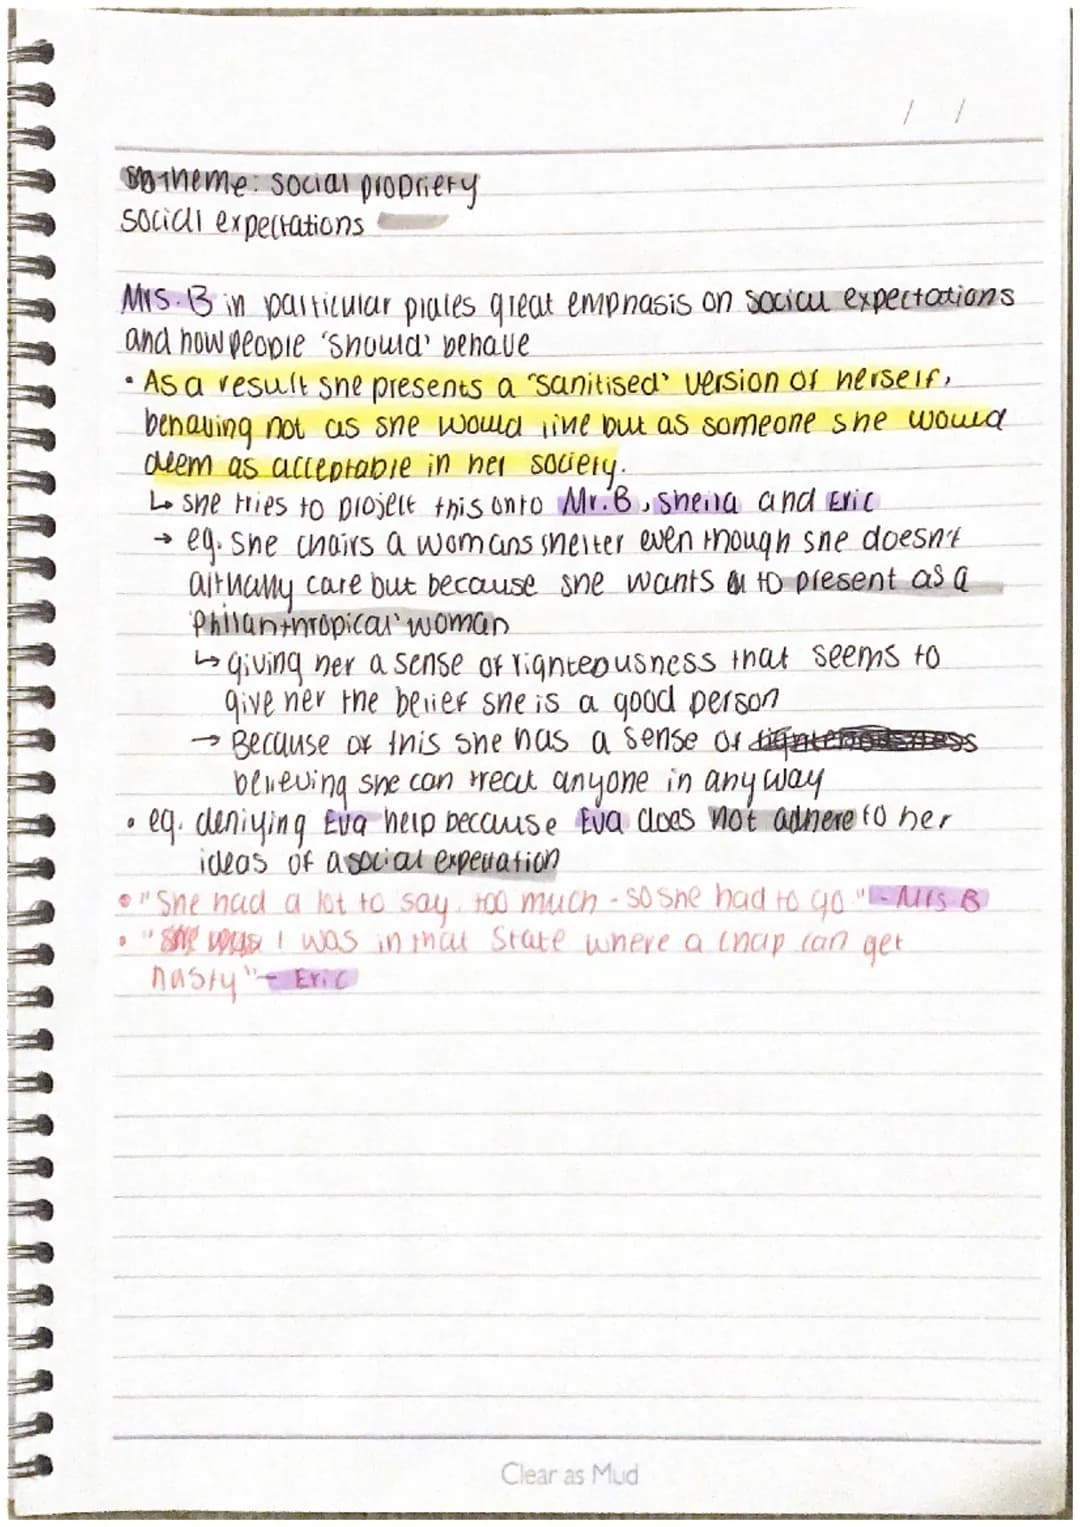 / /
theme: social propriety
social expectations
Mrs. B in particular places great emphasis on social expectations
and how people 'should' behave
• As a result she presents a 'sanitised' version of herself,
behaving not as she would like but as someone she would
deem as acceptable in her society.
↳ she tries to project this onto Mr. B, Sheila and Eric
→ eg. she chairs a womans shelter even though she doesn't
actually care but because she wants to present as a
'philanthropical' woman
↳ giving her a sense of righteousness that seems to
give her the belief she is a good person
→ Because of this she has a sense of righteousness
believing she can treat anyone in any way
• eg. deniying Eva help because Eva does not adhere to her
ideas of a social expectation
• "She had a lot to say. too much - so she had to go" - Mrs B
• "She was I was in that state where a chap can get
nasty" - Eric
Clear as Mud